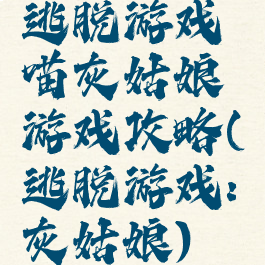 逃脱游戏
喵灰姑娘
游戏攻略(
逃脱游戏:
灰姑娘)